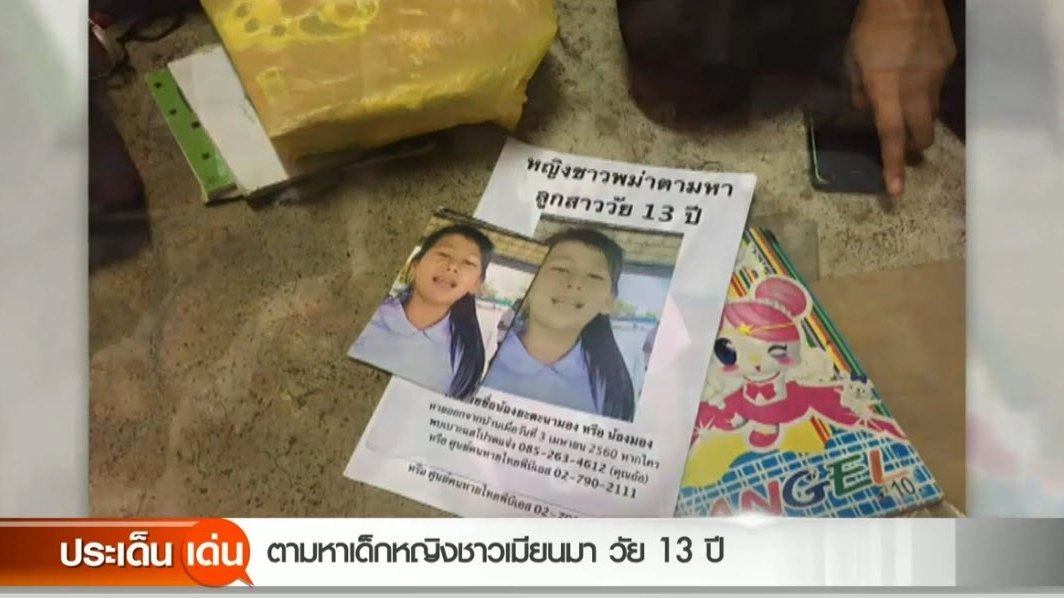 หญิงชาวพม่าตามหา
ลูกสาววัย 13 ปี
ชื่อน้องยะดะนามอง หรือ น้องมอง
หายออกจากบ้านเมื่อวันที่ 3 เมษายน 2560 หากใคร
พบเบาะแสโปรดแจ้ง 085-263-4612 (คุณอ้อ)
หรือ ศูนย์คนหายไทยพีบีเอส 02-790-2111
หรือ ศูนย์คนหายไทยพีบีเอส
ANGEL
10
ประเด็น เด่น
ตามหาเด็กหญิงชาวเมียนมา วัย 13 ปี